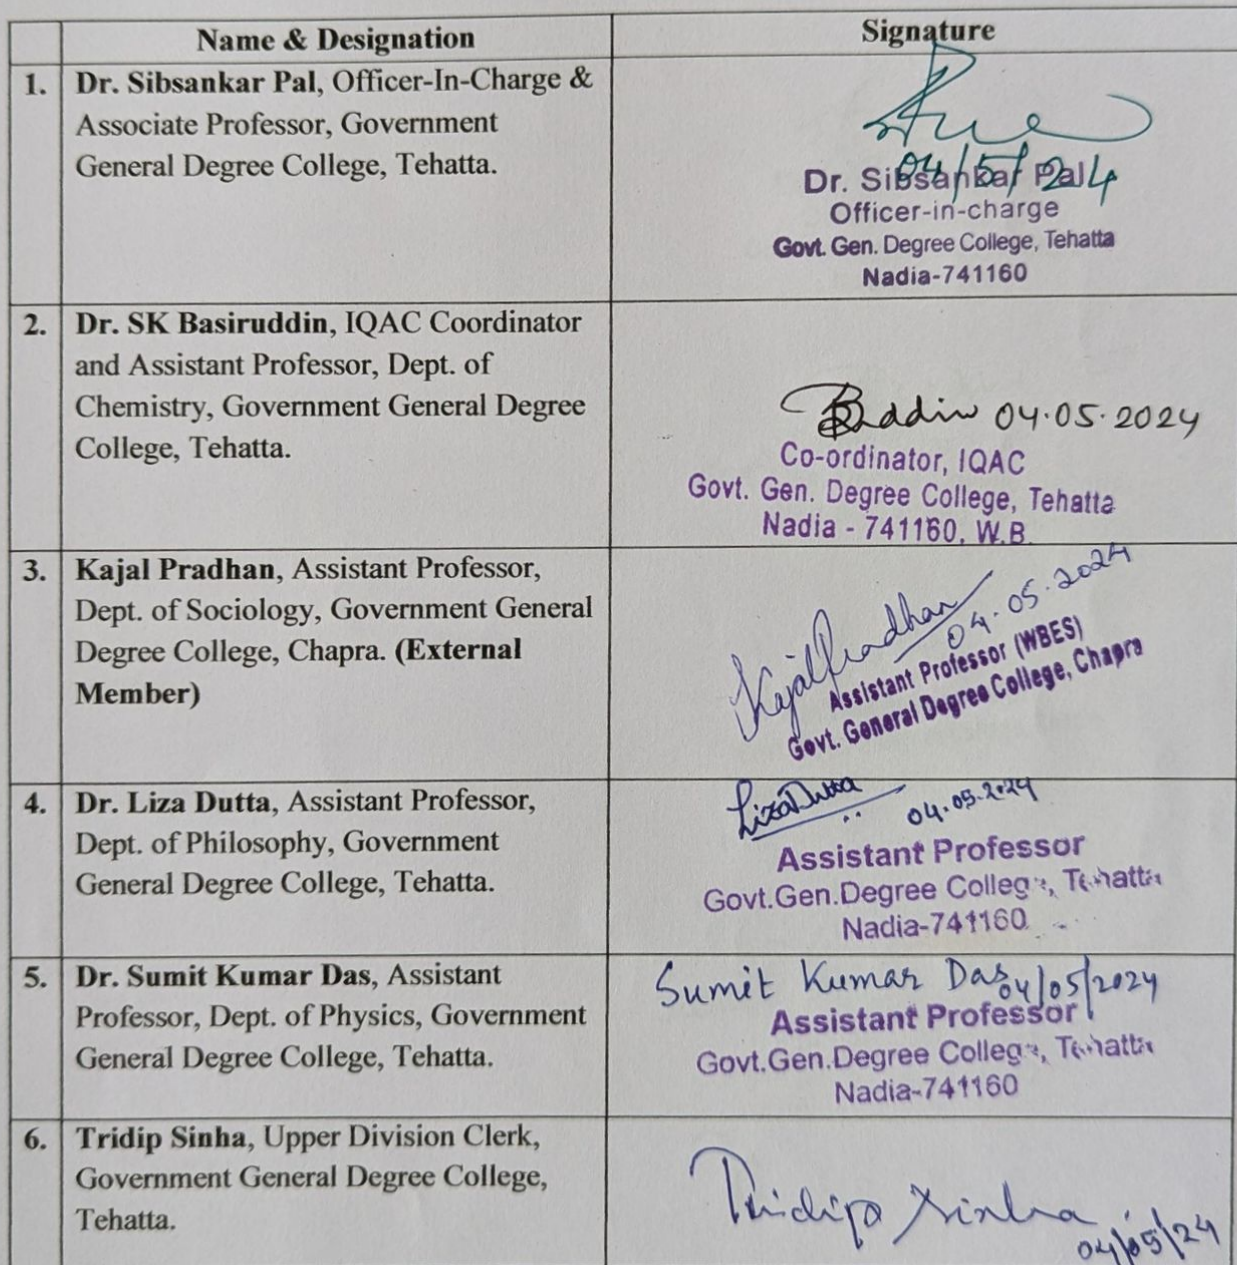 Name & Designation
Signature
1.
Dr. Sibsankar Pal, Officer-In-Charge &
Associate Professor, Government
General Degree College, Tehatta.
04/5/24
Dr. Sibsankar Pal
Officer-in-charge
Govt. Gen. Degree College, Tehatta
Nadia-741160
2.
Dr. SK Basiruddin, IQAC Coordinator
and Assistant Professor, Dept. of
Chemistry, Government General Degree
College, Tehatta.
04.05.2024
Co-ordinator, IQAC
Govt. Gen. Degree College, Tehatta
Nadia - 741160, W.B
3.
Kajal Pradhan, Assistant Professor,
Dept. of Sociology, Government General
Degree College, Chapra. (External
Member)
Kajal Pradhan
04.05.2024
Assistant Professor (WBES)
Govt. General Degree College, Chapra
4.
Dr. Liza Dutta, Assistant Professor,
Dept. of Philosophy, Government
General Degree College, Tehatta.
Liza Dutta 04.05.2024
Assistant Professor
Govt.Gen.Degree College, Tehatta
Nadia-741160
5.
Dr. Sumit Kumar Das, Assistant
Professor, Dept. of Physics, Government
General Degree College, Tehatta.
Sumit Kumar Das 04/05/2024
Assistant Professor
Govt.Gen.Degree College, Tehatta
Nadia-741160
6.
Tridip Sinha, Upper Division Clerk,
Government General Degree College,
Tehatta.
Tridip Sinha
04/05/24